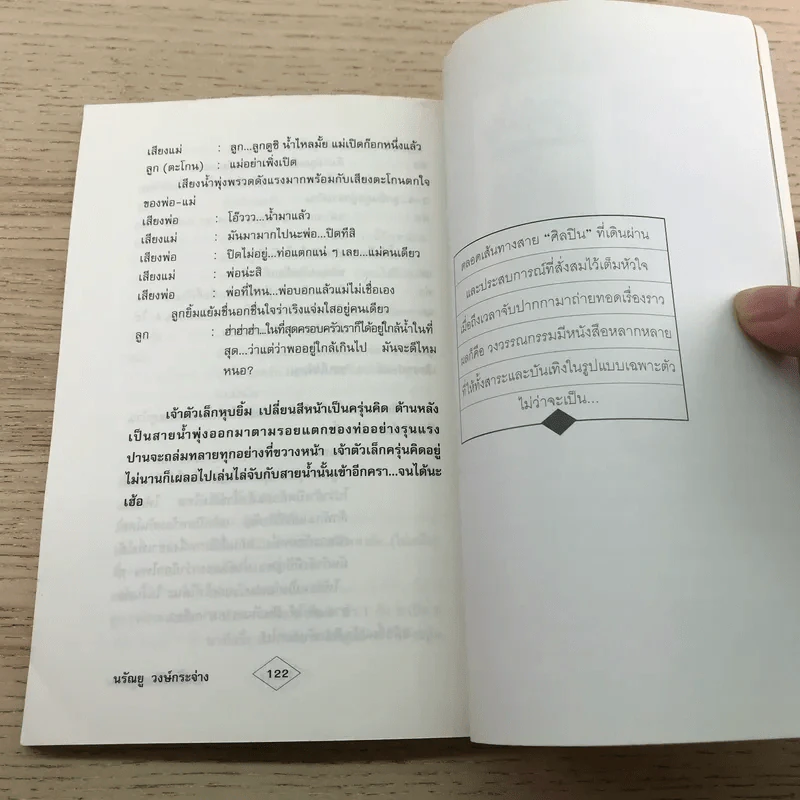 เสียงแม่ : ลูก...ลูกดูซิ น้ำไหลมั้ย แม่เปิดก๊อกหนึ่งแล้ว
ลูก (ตะโกน) : แม่อย่าเพิ่งเปิด
เสียงน้ำพุ่งพรวดดังแรงมากพร้อมกับเสียงตะโกนตกใจ
ของพ่อ-แม่
เสียงพ่อ : โอ๊ววว...น้ำมาแล้ว
เสียงแม่ : มันมามากไปนะพ่อ...ปิดทีสิ
เสียงพ่อ : ปิดไม่อยู่...ท่อแตกแน่ ๆ เลย...แม่คนเดียว
เสียงแม่ : พ่อน่ะสิ
เสียงพ่อ : พ่อที่ไหน...พ่อบอกแล้วแม่ไม่เชื่อเอง
ลูกยิ้มแย้มชื่นอกชื่นใจร่าเริงแจ่มใสอยู่คนเดียว
ลูก : ฮ่าฮ่าฮ่า...ในที่สุดครอบครัวเราก็ได้อยู่ใกล้น้ำในที่
สุด...ว่าแต่ว่าพออยู่ใกล้เกินไป มันจะดีไหม
หนอ?
เจ้าตัวเล็กหุบยิ้ม เปลี่ยนสีหน้าเป็นครุ่นคิด ด้านหลัง
เป็นสายน้ำพุ่งออกมาตามรอยแตกของท่ออย่างรุนแรง
ปานจะถล่มทลายทุกอย่างที่ขวางหน้า เจ้าตัวเล็กครุ่นคิดอยู่
ไม่นานก็เผลอไปเล่นไล่จับกับสายน้ำนั้นเข้าอีกครา...จนได้นะ
เฮ้อ
นรัณยู วงษ์กระจ่าง 122
ตลอดเส้นทางสาย “ศิลปิน” ที่เดินผ่าน
และประสบการณ์ที่สั่งสมไว้เต็มหัวใจ
เมื่อถึงเวลาจับปากกามาถ่ายทอดเรื่องราว
ผลก็คือ วงวรรณกรรมมีหนังสือหลากหลาย
ที่ให้ทั้งสาระและบันเทิงในรูปแบบเฉพาะตัว
ไม่ว่าจะเป็น...